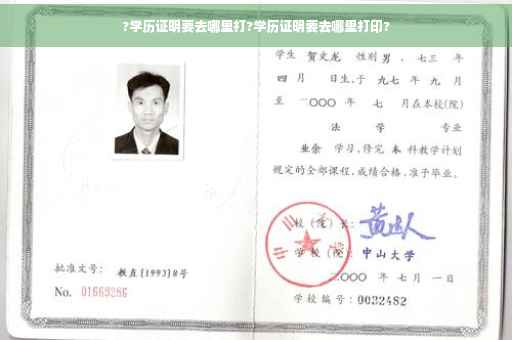 ?学历证明要去哪里打?学历证明要去哪里打印?
学生 贺文龙 性别 男 、七三 年
四 月 日生,于 九七 年 九 月
至 二〇〇〇 年 七 月在本校(院)
法 学 专业
业余 学习,修完 本 科教学计划
规定的全部课程,成绩合格,准予毕业。
校(院)长:
学 校(院): 中山大学
二〇〇〇 年 七 月 一 日
批准文号: 教直[1993]8号
No. 01669286
学校编号: 0032482